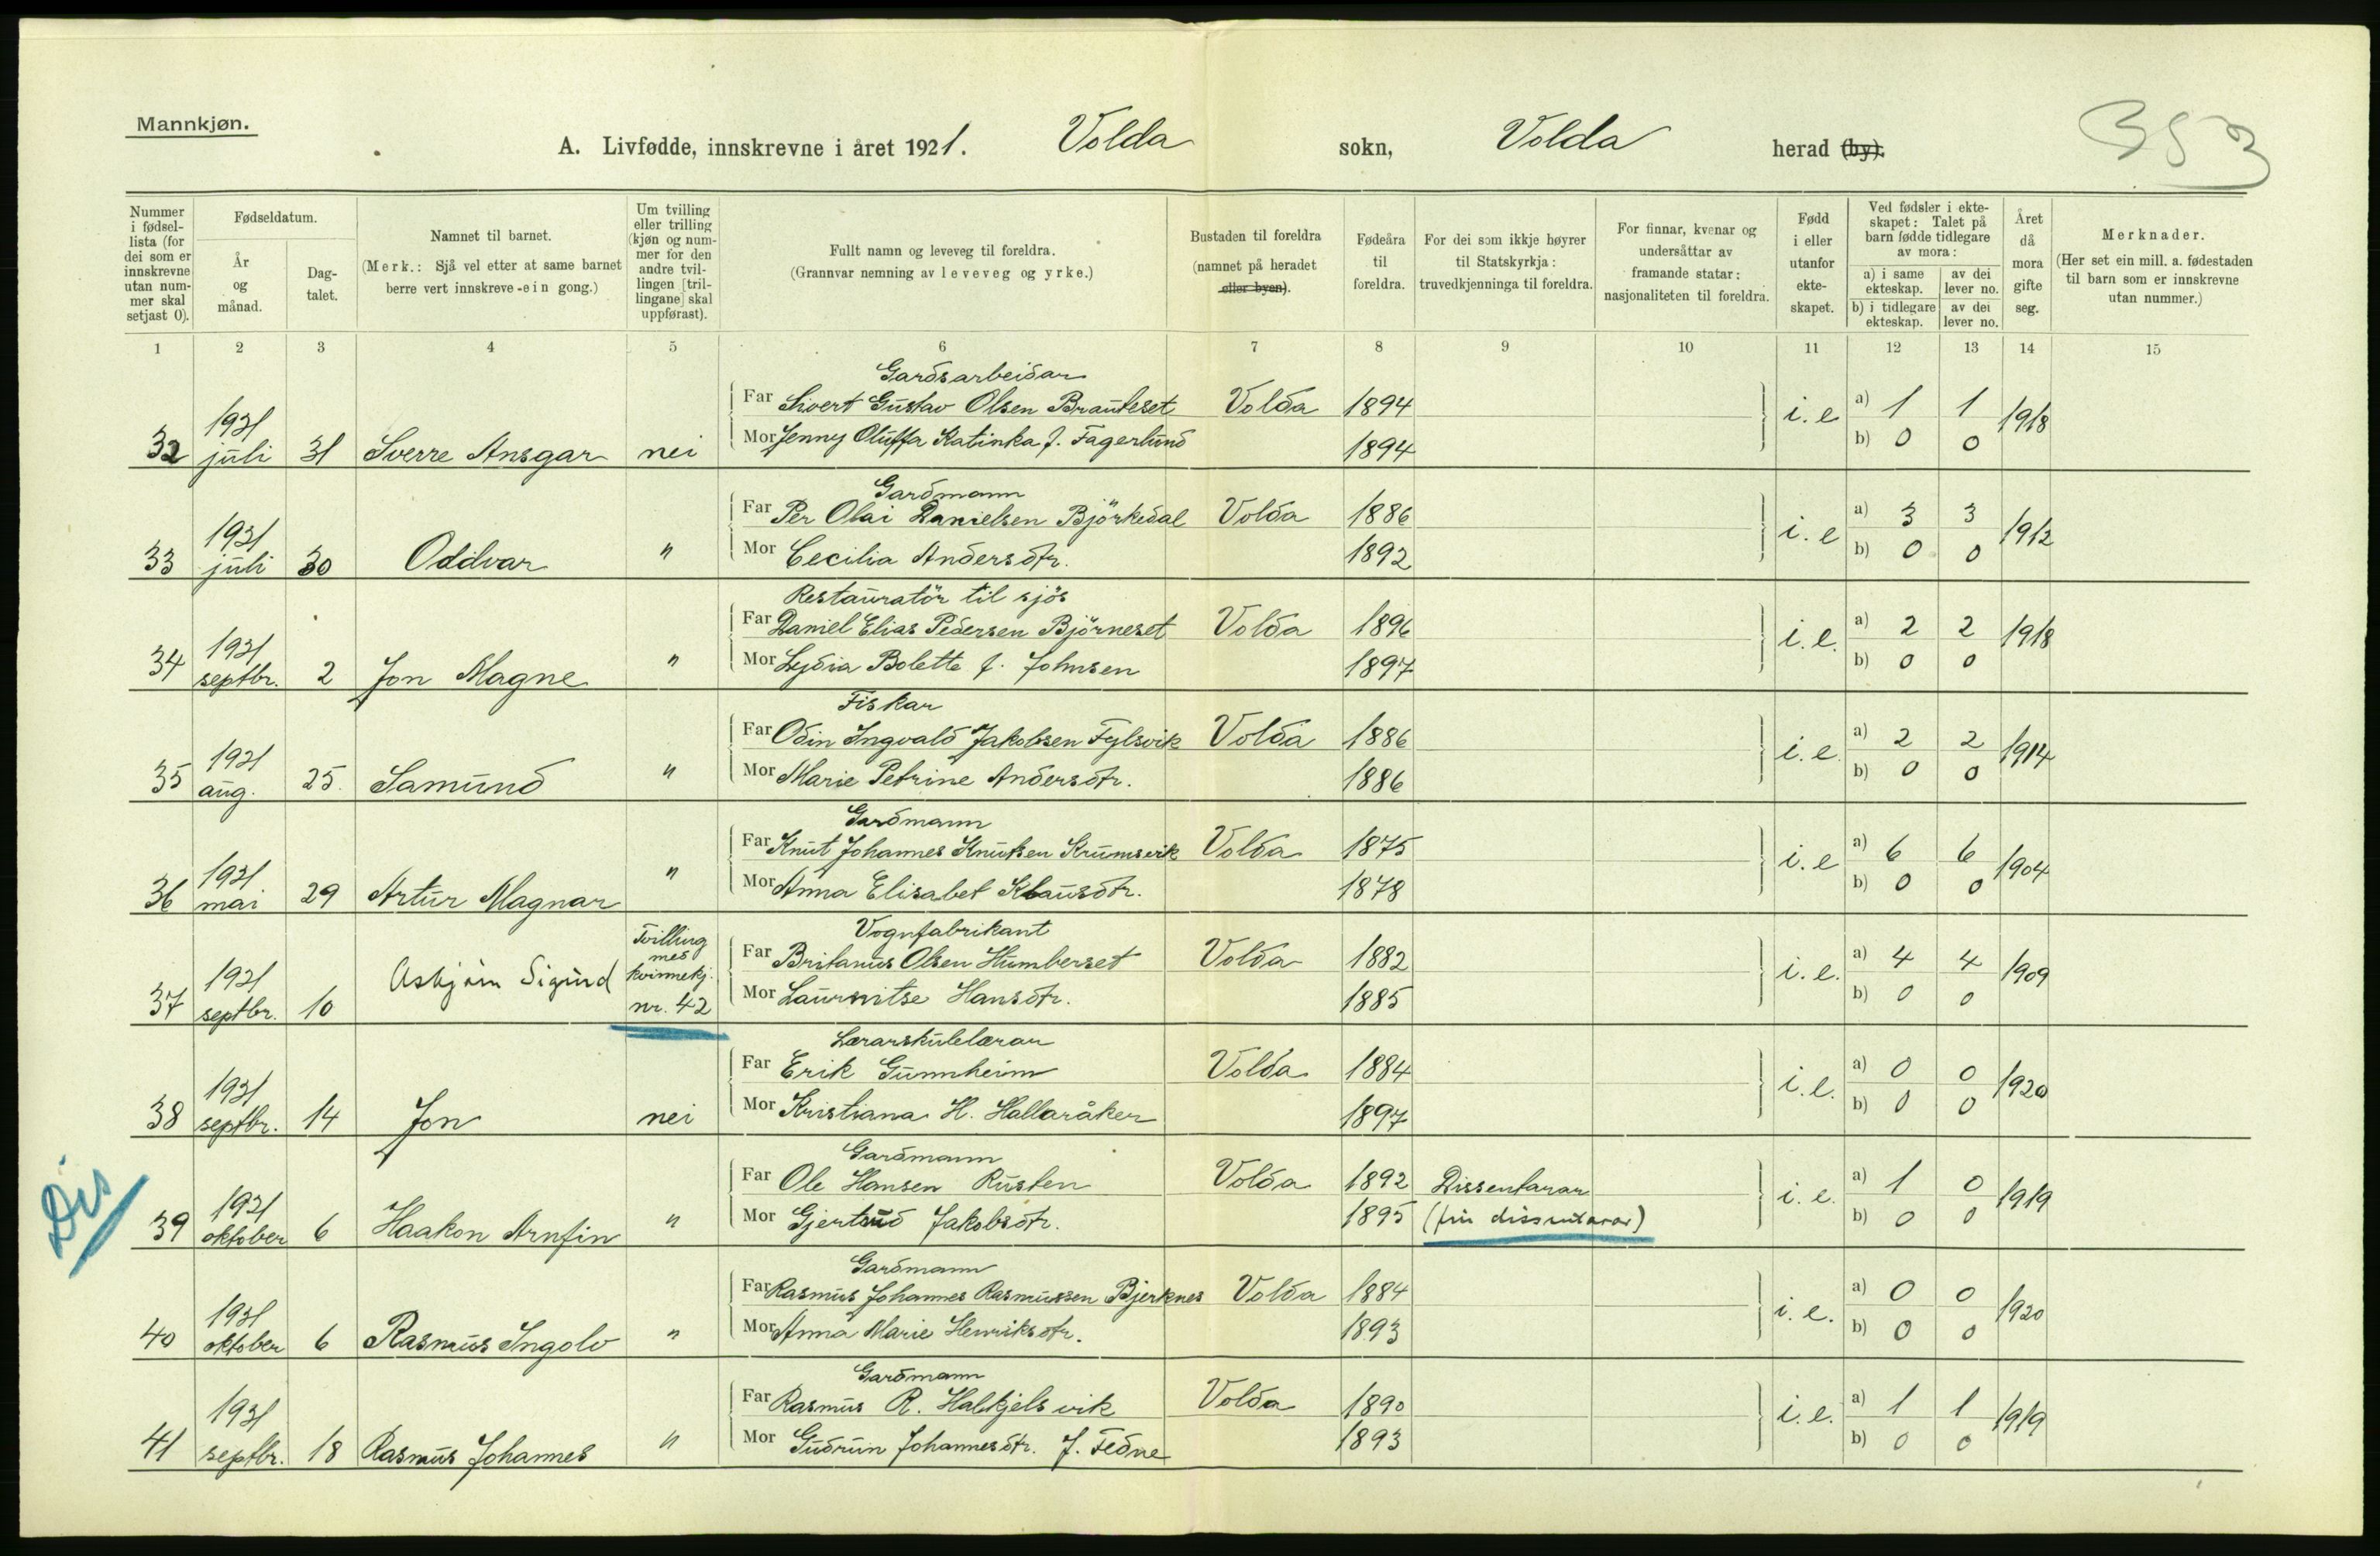 Mannkjøn.
A. Livfødde, innskrevne i året 1921. Volda sokn, Volda herad (by).
353
Nummer i fødsel-lista (for dei som er innskrevne utan num-mer skal setjast 0).
Fødseldatum.
År og månad.
Dag-talet.
Namnet til barnet.
(Merk.: Sjå vel etter at same barnet berre vert innskreve ein gong.)
Um tvilling eller trilling (kjøn og num-mer for den andre tvil-lingen [tril-lingane] skal uppførast).
Fullt namn og leveveg til foreldra.
(Grannvar nemning av leveveg og yrke.)
Bustaden til foreldra (namnet på heradet eller byen).
Fødeåra til foreldra.
For dei som ikkje høyrer til Statskyrkja: truvedkjenninga til foreldra.
For finnar, kvenar og undersåttar av framande statar: nasjonaliteten til foreldra.
Fødd i eller utanfor ekte-skapet.
Ved fødsler i ekte-skapet: Talet på barn fødde tidlegare av mora:
a) i same ekteskap. av dei lever no.
b) i tidlegare ekteskap. av dei lever no.
Året då mora gifte seg.
Merknader.
(Her set ein mill. a. fødestaden til barn som er innskrevne utan nummer.)
1 2 3 4 5 6 7 8 9 10 11 12 13 14 15
Gardsarbeidar
Far Sivert Gustav Olsen Brauteset Volda 1894 i.e a) 1 1 1918
32 1921 juli 31 Sverre Ansgar nei Mor Jenny Oluffa Katinka f. Fagerlund 1894 b) 0 0
Gardmann
Far Per Olai Danielsen Björkedal Volda 1886 i.e a) 3 3 1912
33 1921 juli 30 Oddvar " Mor Cecilia Andersdtr. 1892 b) 0 0
Restauratör til sjös
Far Daniel Elias Pedersen Björneset Volda 1896 i.e. a) 2 2 1918
34 1921 septbr. 2 Jon Magne " Mor Lydia Bolette f. Johnsen 1897 b) 0 0
Fiskar
Far Odin Ingvald Jakobsen Fylsvik Volda 1886 i.e. a) 2 2 1914
35 1921 aug. 25. Samund " Mor Marie Petrine Andersdtr. 1886 b) 0 0
Gardmann
Far Knut Johannes Knutsen Krumsvik Volda 1875 i.e a) 6 6 1904
36 1921 mai 29 Artur Magnar " Mor Anna Elisabet Klausdtr. 1878 b) 0 0
Vognfabrikant
Far Britanus Olsen Humberset Volda 1882 i.e. a) 4 4 1909
37 1921 septbr. 10 Asbjörn Sigurd Tvilling med kvinnekj. nr. 42 Mor Lauritse Hansdtr. 1885 b) 0 0
Lærarskulelærar
Far Erik Gunnheim Volda 1884 i.e. a) 0 0 1920
38 1921 septbr. 14 Jon nei Mor Kristiana H. Hallaråker 1897 b) 0 0
Gardmann
Dis
Far Ole Hansen Rusten Volda 1892 Dissentarar i.e. a) 1 0 1919
39 1921 oktober 6 Haakon Arnfin " Mor Gjertrud Jakobsdtr. 1895 (fri dissentarar) b) 0 0
Gardmann
Far Rasmus Johannes Rasmussen Bjerknes Volda 1884 i.e. a) 0 0 1920
40 1921 oktober 6 Rasmus Ingolv " Mor Anna Marie Henriksdtr. 1893 b) 0 0
Gardmann
Far Rasmus R. Halkjelsvik Volda 1890 i.e. a) 1 1 1919
41 1921 septbr. 18 Rasmus Johannes " Mor Gudrun Johannesdtr. f. Fedne 1893 b) 0 0